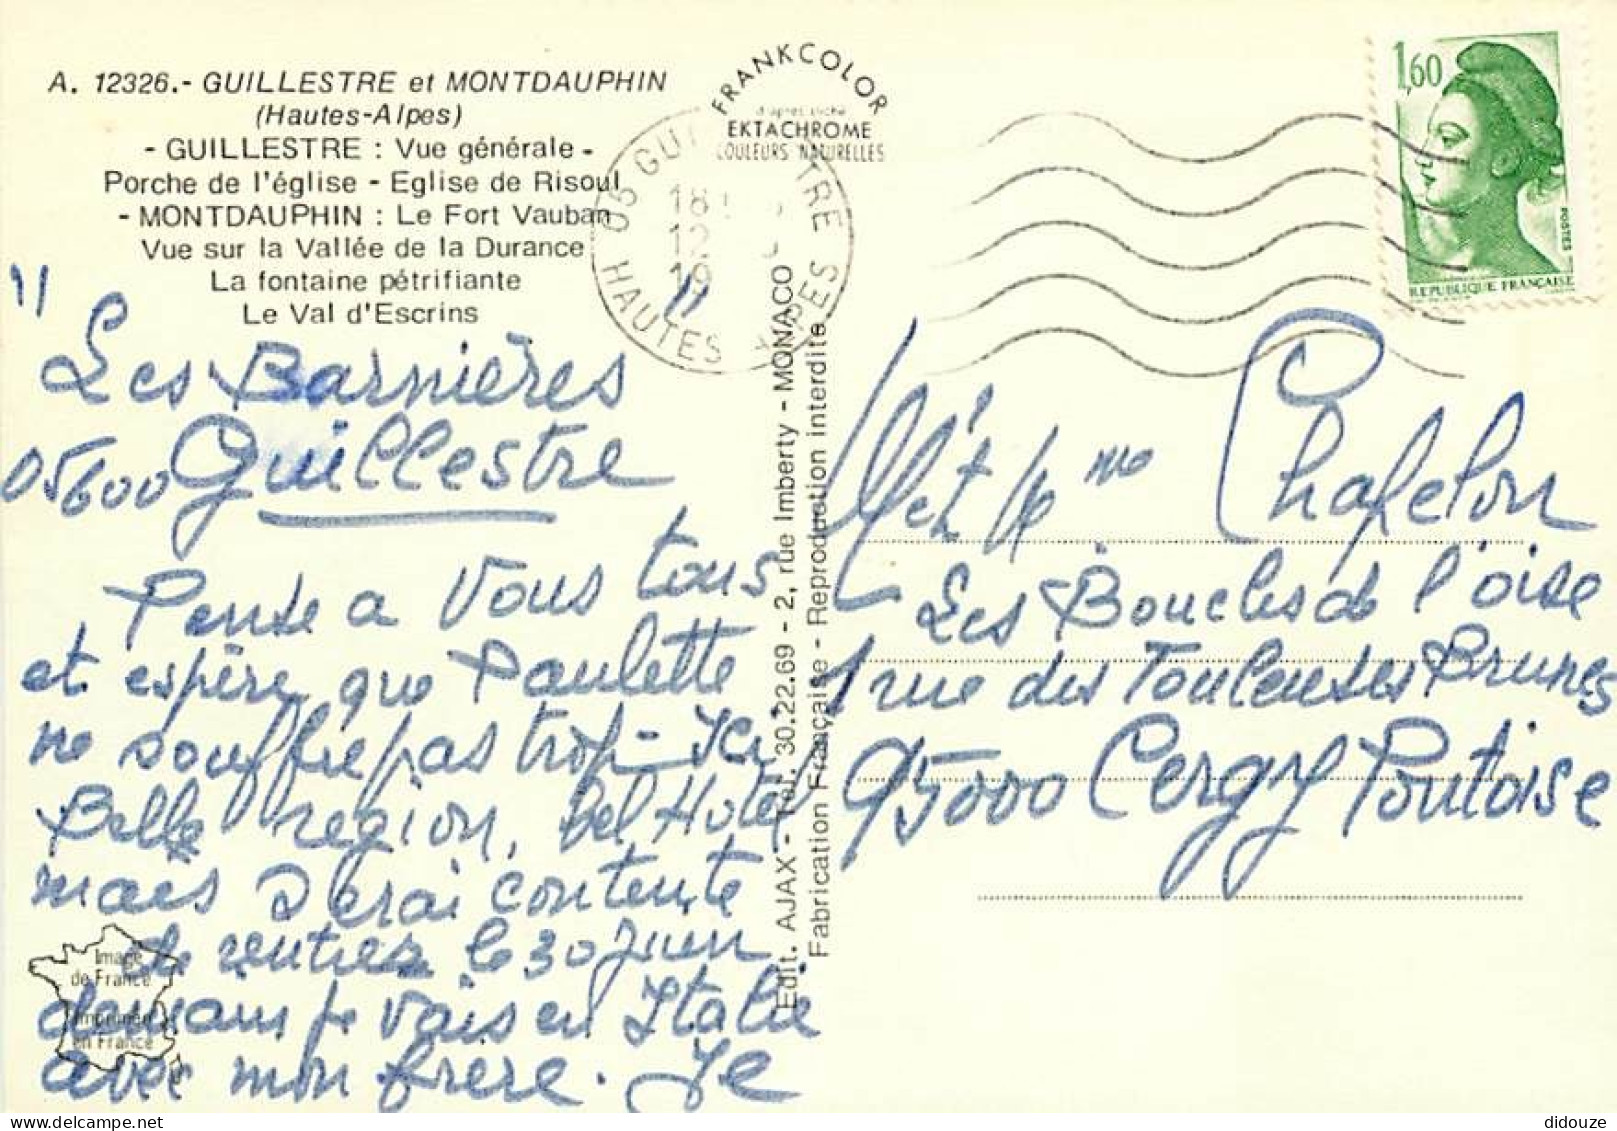 A. 12326.- GUILLESTRE et MONTDAUPHIN
(Hautes-Alpes)
- GUILLESTRE : Vue générale -
Porche de l'église - Eglise de Risoul
- MONTDAUPHIN : Le Fort Vauban
Vue sur la Vallée de la Durance
La fontaine pétrifiante
Le Val d'Escrins
FRANKCOLOR
d'après cliché
EKTACHROME
COULEURS NATURELLES
05 GUI TRE
HAUTES ALPES
18
12
19
1,60
POSTES
REPUBLIQUE FRANÇAISE
" Les Barnières "
05600 Guillestre
Pense a vous tous
et espère que Paulette
ne souffre pas trop - Ici
Belle region, bel Hotel
mais serai contente
de rentrer le 30 juin
demain je vais en Italie
avec mon frere. Je
Image
de France
Imprimé
en France
Edit. AJAX - Tél. 30.22.69 - 2, rue Imberty - MONACO
Fabrication Française - Reproduction interdite
M et Mme Chafelon
Les Boucles de l'oise
1 rue des Touleuses Brunes
95000 Cergy Pontoise
didouze